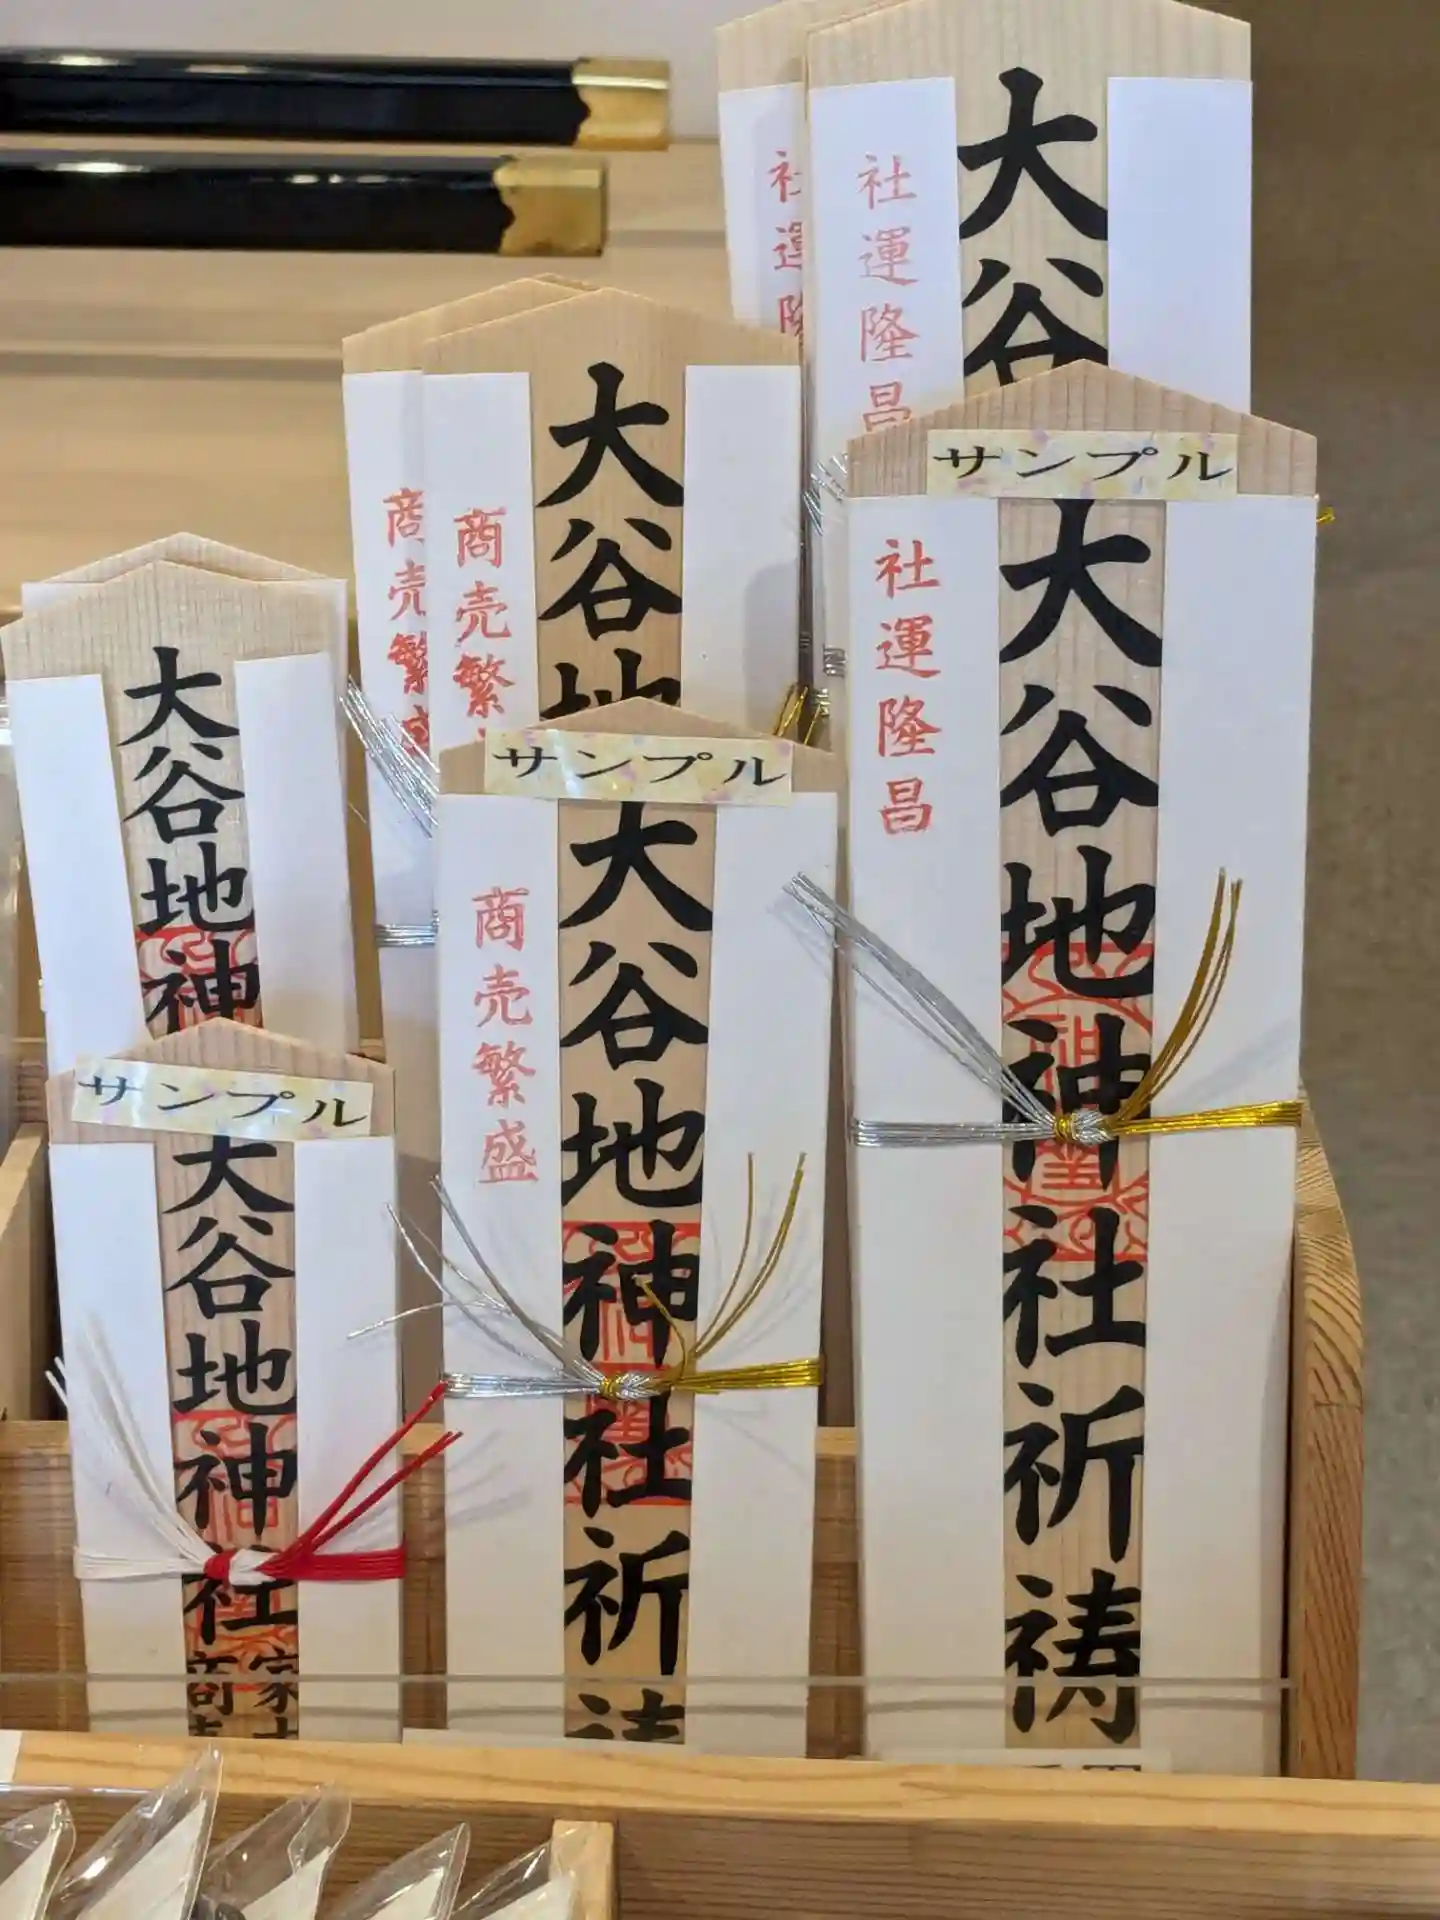 社運隆昌
大谷
社運隆
商売繁
大谷地
商売繁盛
大谷地神
サンプル
社運隆昌
大谷地神社祈祷
サンプル
商売繁盛
大谷地神社祈祷
サンプル
大谷地神社
家
商売